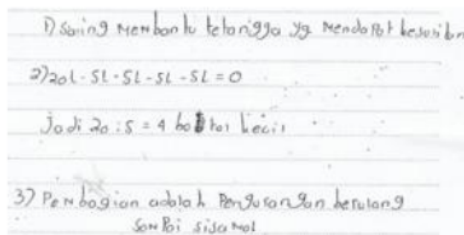 1) Saling Membantu tetangga yg Mendapat kesusilan
2) 20l - 5l - 5l - 5l - 5l = 0
Jadi 20 : 5 = 4 botol kecil
3) Pembagian adalah Pengurangan berulang
Sampai sisa nol